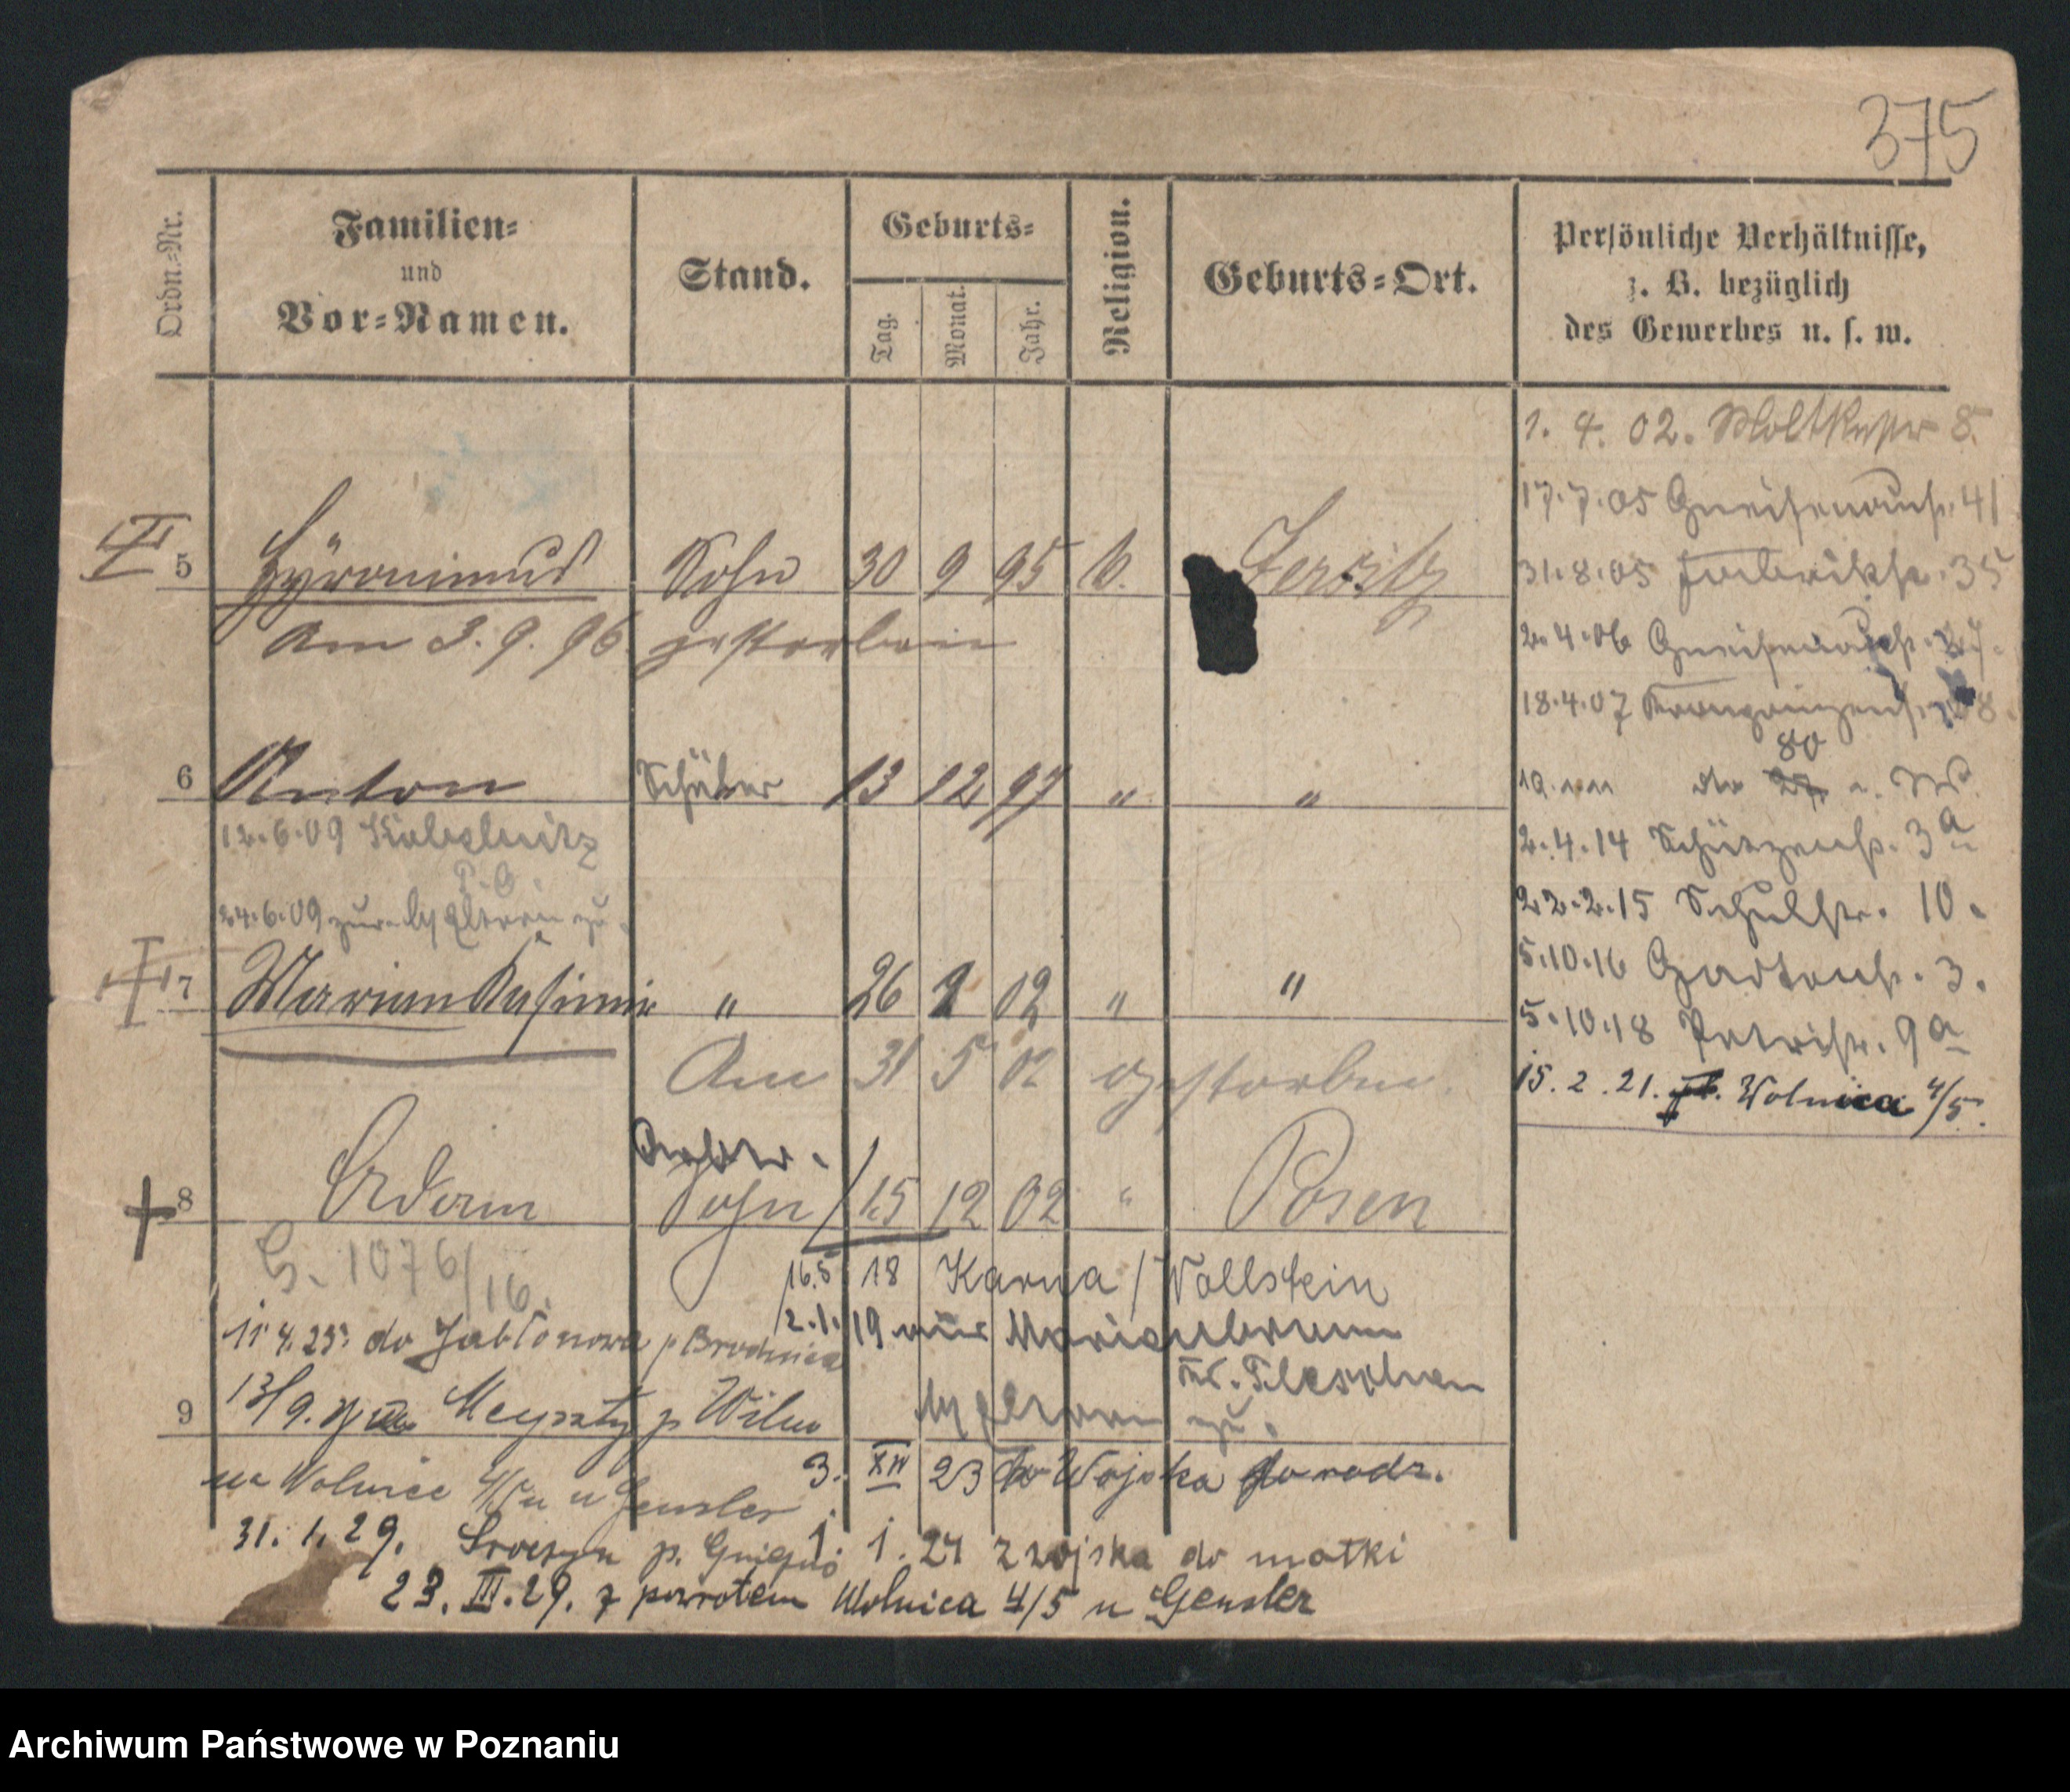 375
Ordn.-Nr.
Familien-
und
Vor-Namen.
Stand.
Geburts-
Tag.
Monat.
Jahr.
Religion.
Geburts-Ort.
Persönliche Verhältnisse,
z. B. bezüglich
des Gewerbes u. s. w.
1. 4. 02. Moltkestr 8.
17.7.05 Gneisenaustr. 41
31.8.05 Fabrikstr. 35
2.4.06 Gneisenaustr.
18.4.07 Kronprinzenstr. 8
80
do
2.4.14 Schützenstr. 3a
22.2.15 Schulstr. 10.
5.10.16 Gartenstr. 3.
5.10.18 Petristr. 9a
15. 2. 21. Wolnica 4/5.
5 Hyronimus Sohn 30 9 95 k. Jersitz
Am 3. 9. 96. gestorben
6 Anton Schüler 13 12 97 " "
12.6.09
24.6.09 zur. Eltern zu.
7 Marian Kasimir " 26 2 02 " "
Am 31 5 02 gestorben.
8 Adam Sohn 15 12 02 " Posen
G. 1076/16.
16.5. 18 Karna / Wollstein
2.1. 19 aus Marienbronn
Kr. Pleschen
Eltern zu.
11 4. 23. do Jabłonowa p Brodnica
9
13/9. p Wilno
3. XII 23 do Wojska
na Wolnice 4/5 u Gensler
31. 1. 29. p.
1. 1. 27 z wojska do matki
23. III. 29. z powrotem Wolnica 4/5 u Gensler
Archiwum Państwowe w Poznaniu